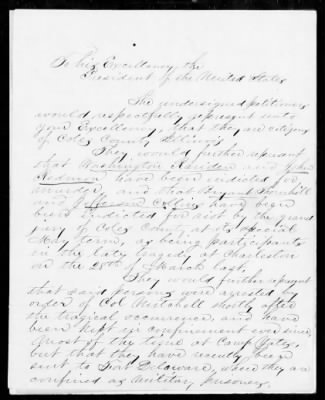 To his Excellency, the
President of the United States
The undersigned petitioners
would respectfully represent unto
your Excellency, that they are citizens
of Coles County Illinois
They would further represent
that Washington and John
Redmon have been indicted for
murder, and that Bryant Thornhill
and Jefferson Collins have been
been indicted for riot by the grand
jury of Coles County, at its special
May term, as being participants
in the late tragedy, at Charleston
on the 28th of March last.
They would further represent
that said persons were arrested by
order of Col Mitchell shortly after
the tragical occurrence, and have
been kept in confinement ever since,
most of the time at Camp Yates,
but that they have recently been
sent to Fort Delaware, where they are
confined as military prisoners.